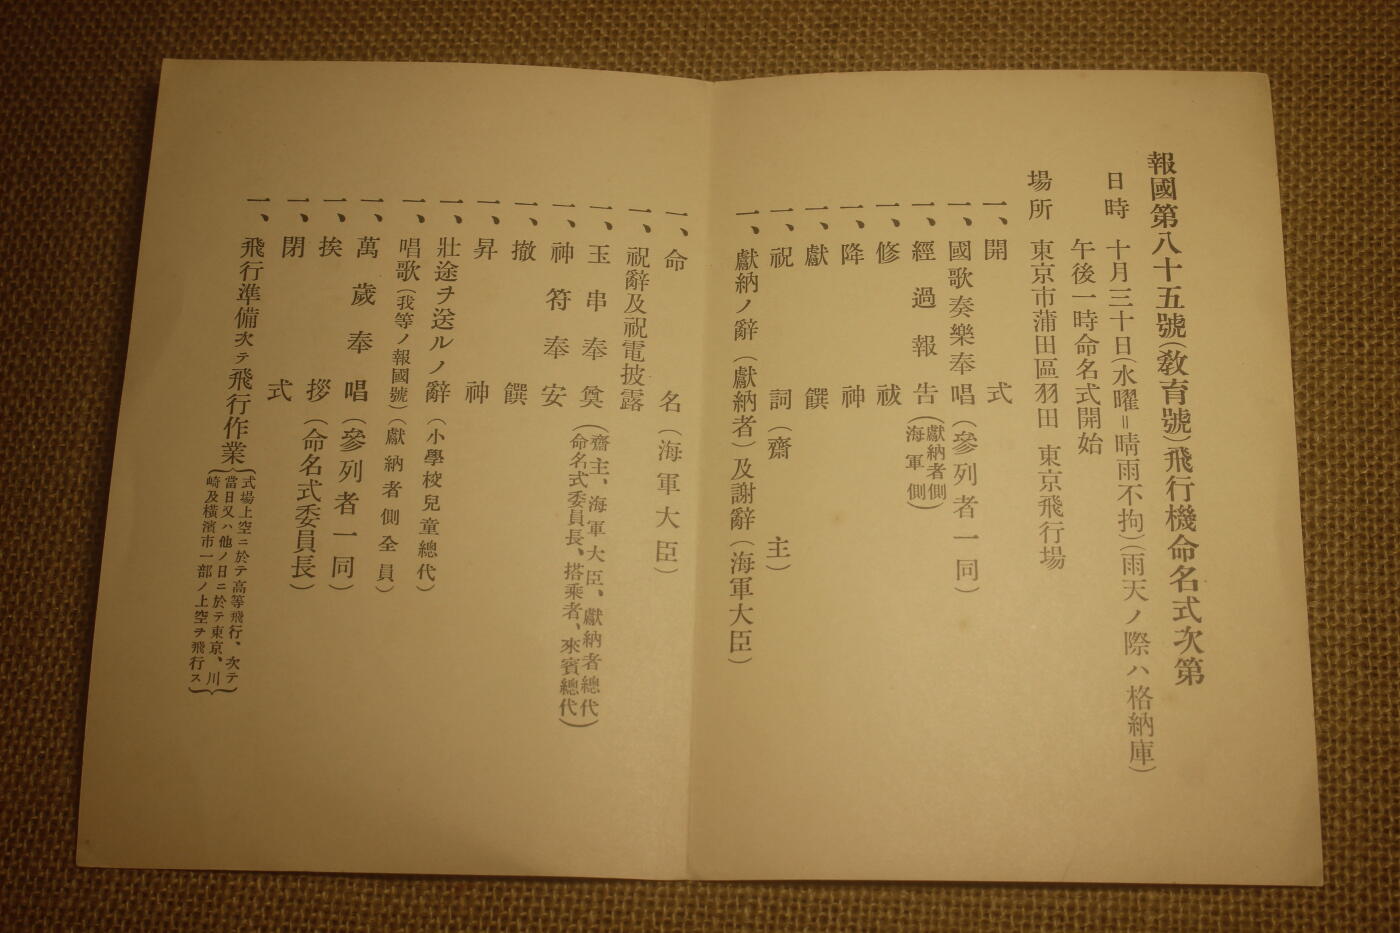 報國第八十五號(教育號)飛行機命名式次第
日時 十月三十日(水曜=晴雨不拘)(雨天ノ際ハ格納庫)
午後一時命名式開始
場所 東京市蒲田區羽田 東京飛行場
一、開式
一、國歌奏樂奉唱(參列者一同)
一、經過報告(獻納者側 海軍側)
一、修祓
一、降神
一、獻饌
一、祝詞(齋主)
一、獻納ノ辭(獻納者)及謝辭(海軍大臣)
一、命名(海軍大臣)
一、祝辭及祝電披露
一、玉串奉奠(齋主、海軍大臣、獻納者總代 命名式委員長、搭乘者、來賓總代)
一、神符奉安
一、撤饌
一、昇神
一、壯途ヲ送ルノ辭(小學校兒童總代)
一、唱歌(我等ノ報國號)(獻納者側全員)
一、萬歲奉唱(參列者一同)
一、挨拶(命名式委員長)
一、閉式
一、飛行準備次テ飛行作業{式場上空ニ於テ高等飛行、次テ
當日又ハ他ノ日ニ於テ東京、川
崎及橫濱市一部ノ上空ヲ飛行ス}